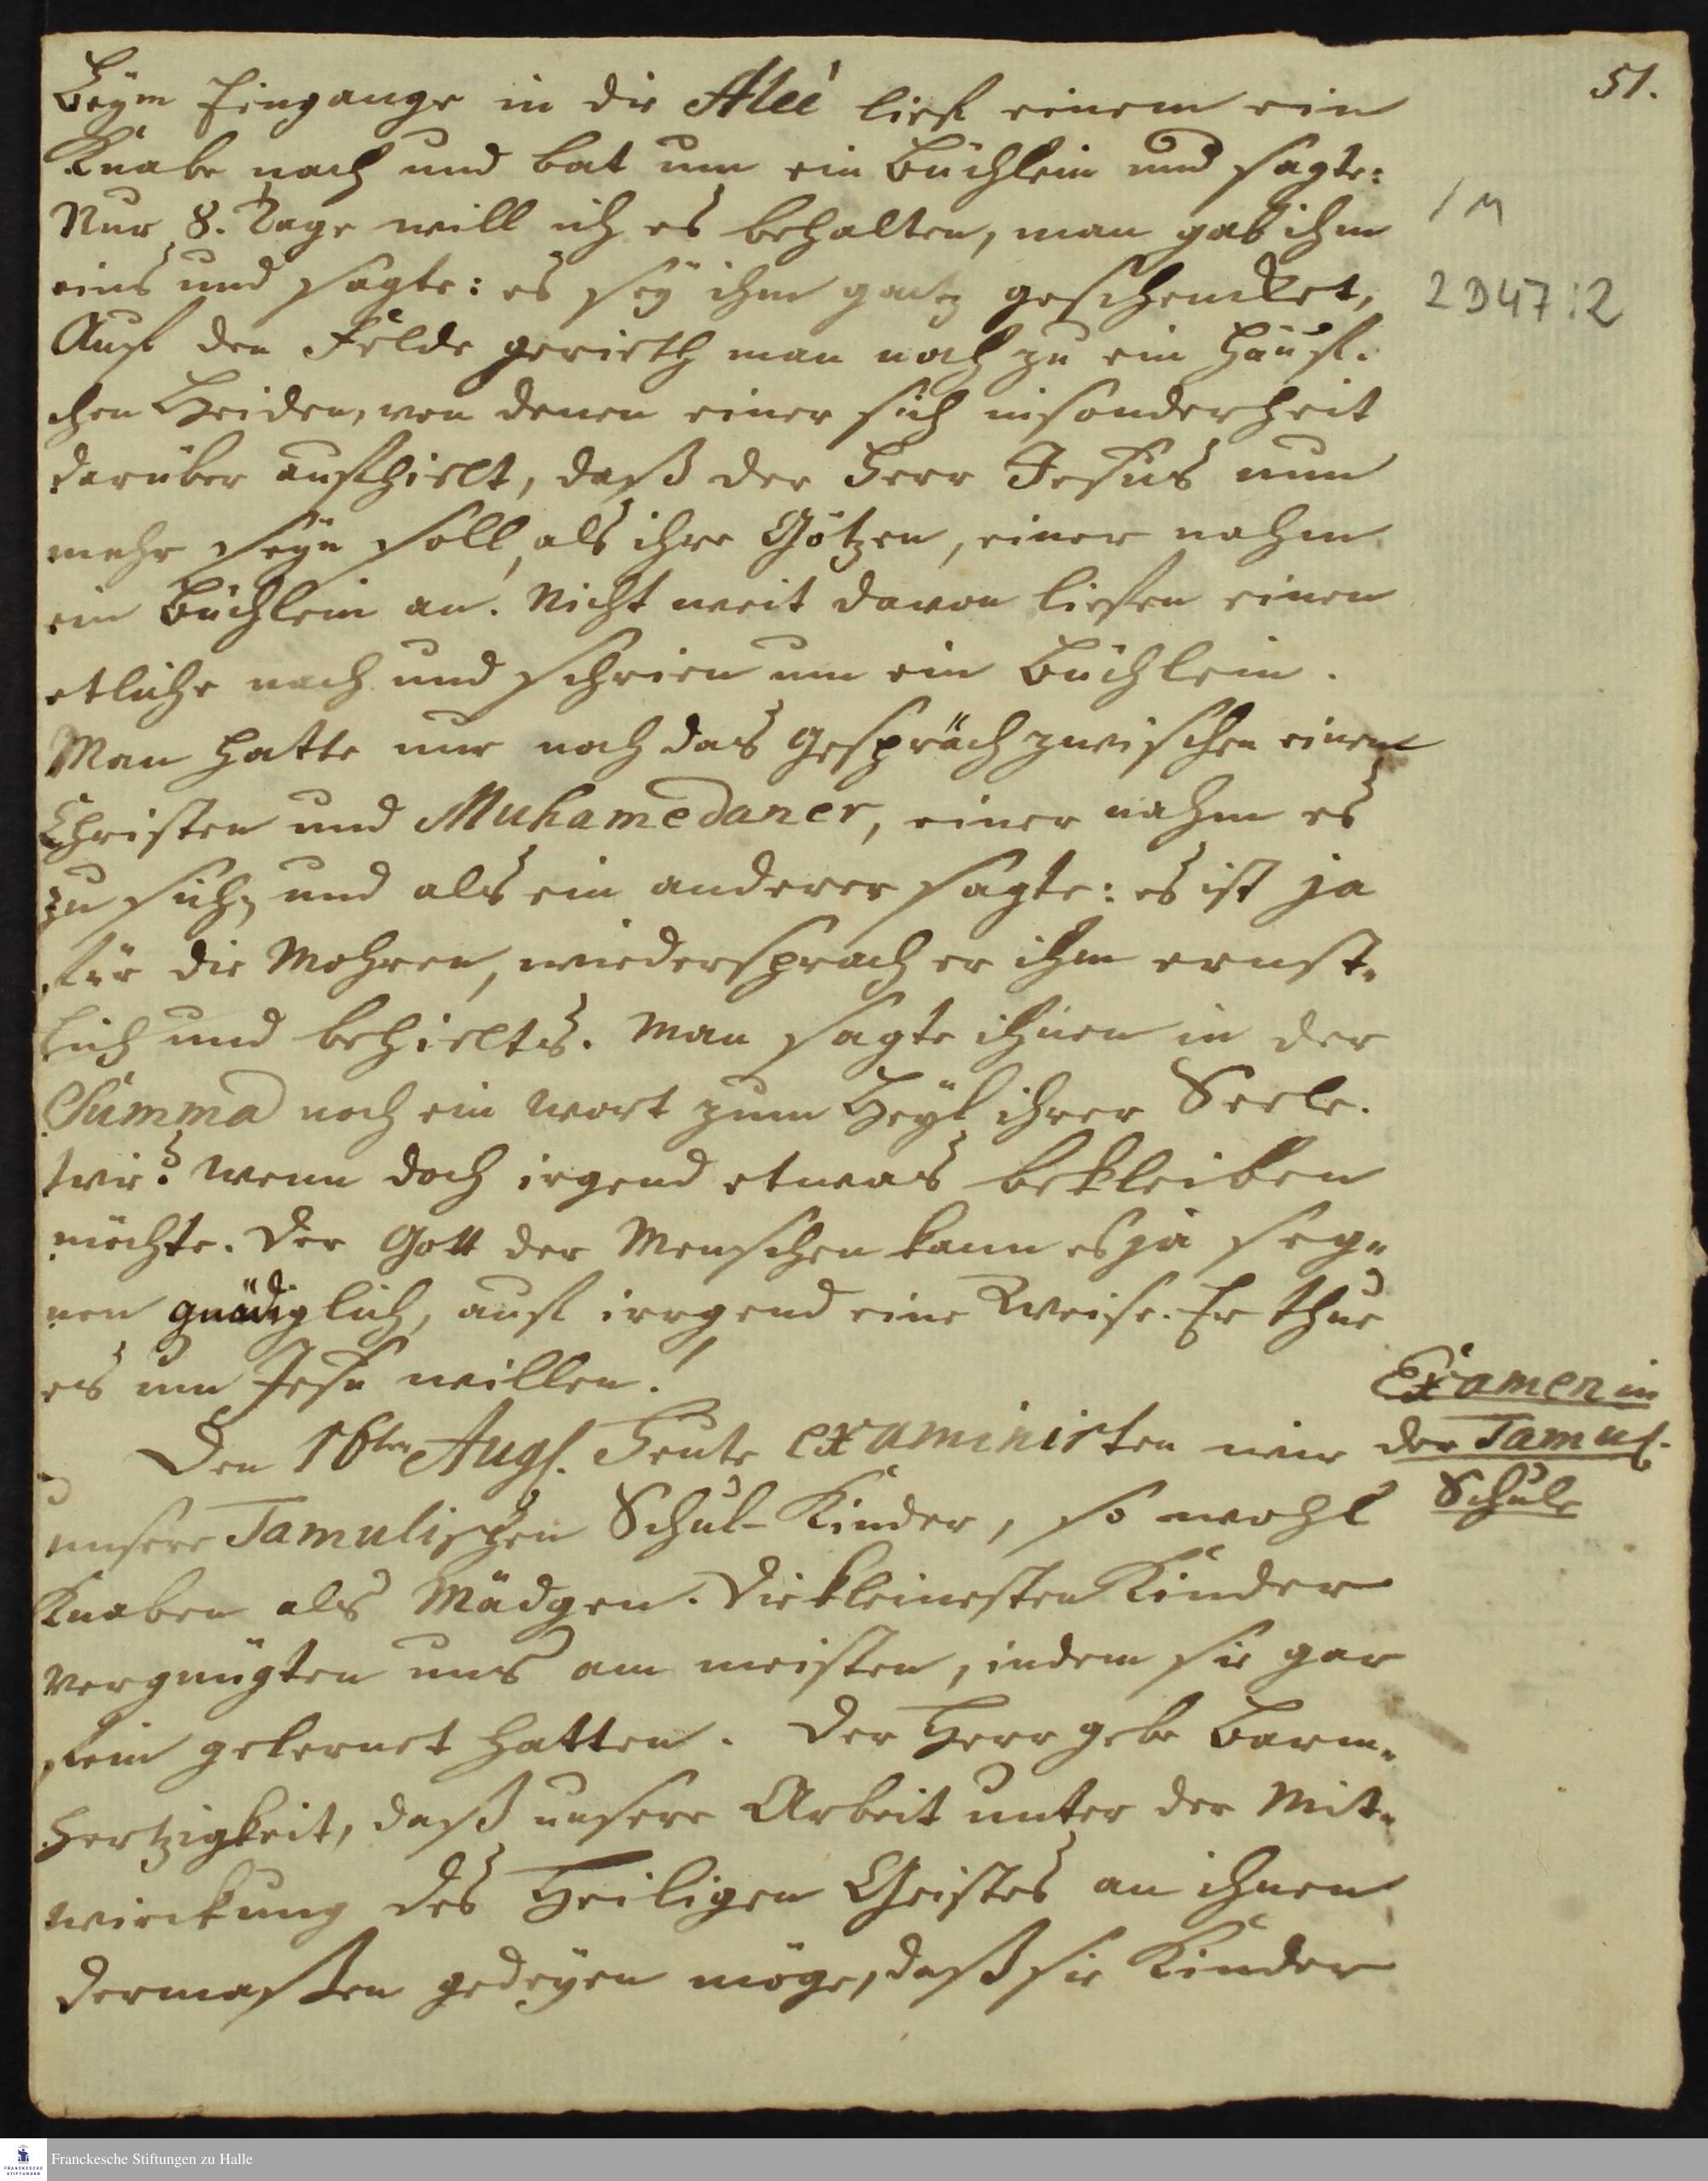 51.
Beÿm Eingange in die Aleé lief einem ein
Knabe nach und bat um ein Büchlein und sagte:
Nur 8. Tage will ich es behalten, man gab ihm
eins und sagte: es seÿ ihm gantz geschencket,
1 M
2 D47:2
Auf den Felde gerieth man noch zu ein Häuf-
chen Heiden, von denen einer sich insonderheit
darüber aufhielt, daß der Herr Jesus nun
mehr seÿn soll, als ihre Götzen, einer nahm
ein Büchlein an. Nicht weit davon liefen einen
etliche nach und schrien um ein Büchlein.
Man hatte nur noch das Gespräch zwischen einem
Christen und Muhamedaner, einer nahm es
zu sich, und als ein anderer sagte: es ist ja
für die Mohren, wiedersprach er ihm ernst-
lich und behielts. Man sagte ihnen in der
Summa noch ein Wort zum Heÿl ihrer Seele.
wie? wenn doch irgend etwas bekleiben
möchte. Der Gott der Menschen kann es ja seg-
nen gnädiglich, auf irrgend eine Weise. Er thue
es um Jesu willen!
Examen in
der Tamul.
Schule
Den 16ten Aug. Heute examinirten wir
unsere Tamulischen Schul-Kinder, so wohl
Knaben als Mädgen. Die kleinesten Kinder
vergnügten uns am meisten, indem sie gar
fein gelernet hatten. Der Herr gebe Barm-
hertzigkeit, daß unsere Arbeit unter der Mit-
wirckung des Heiligen Geistes an ihnen
dermaßen gedeÿen möge, daß sie Kinder
Franckesche Stiftungen zu Halle